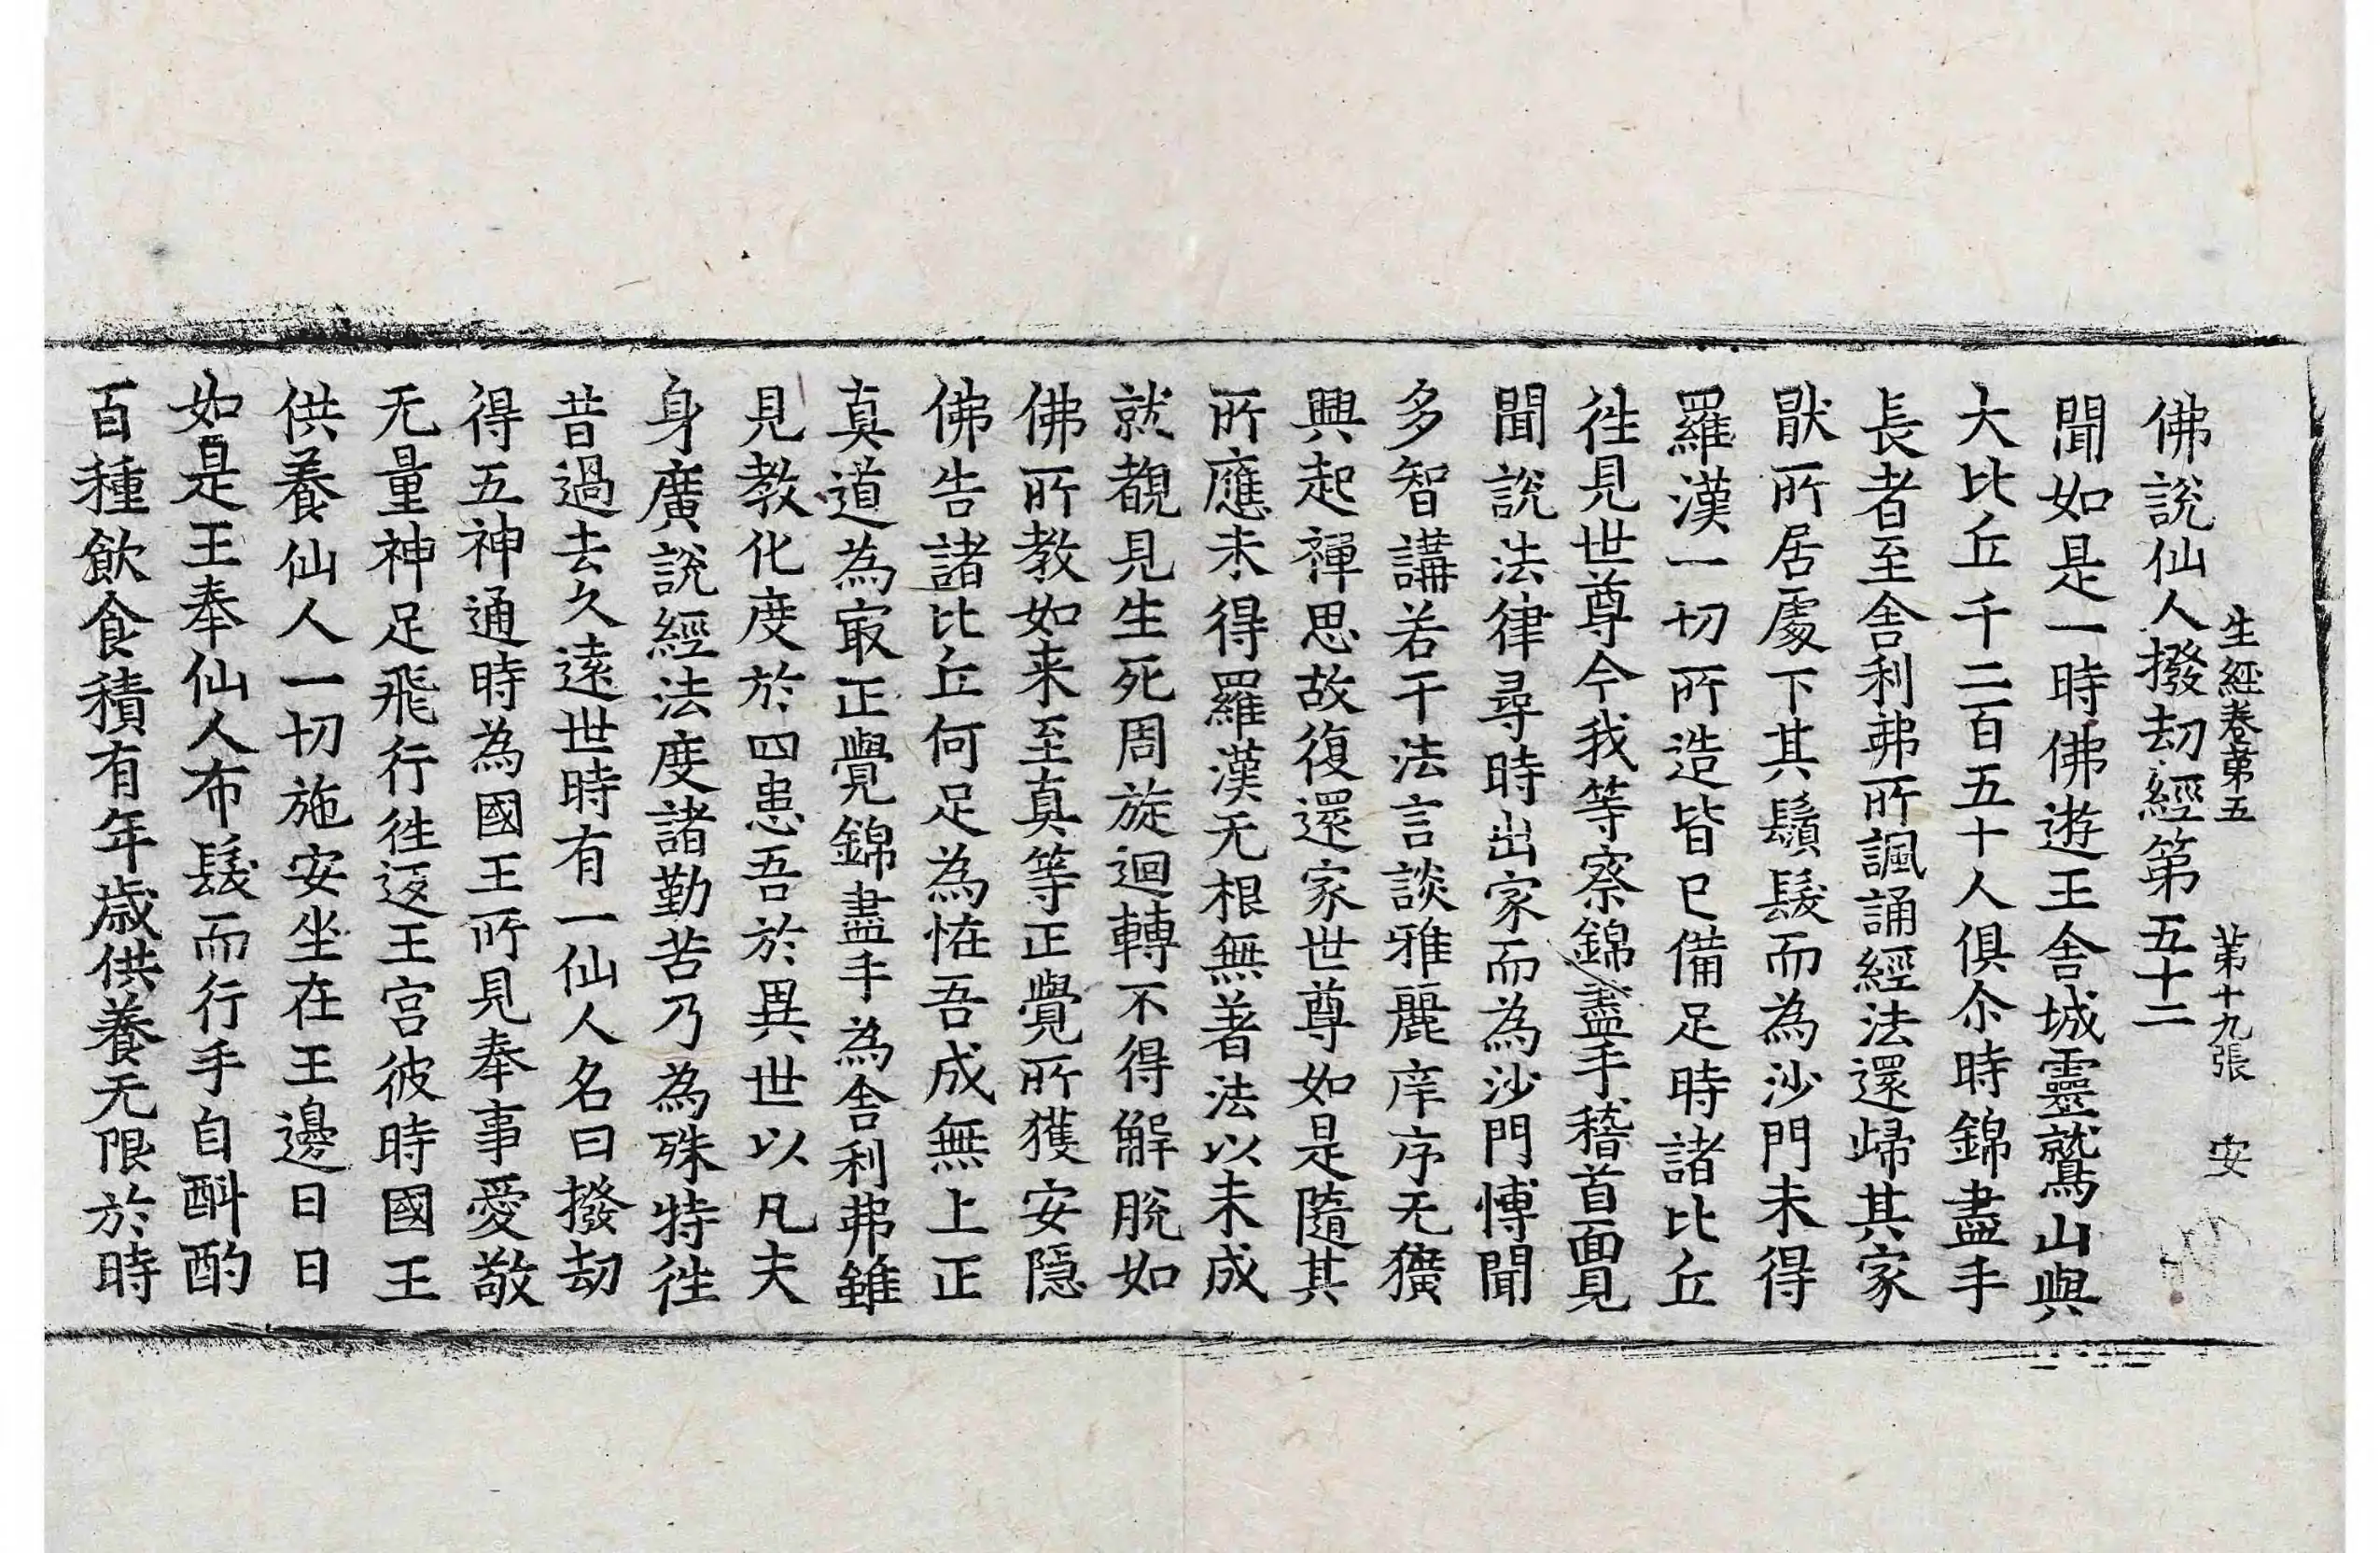 生經卷第五 第十九張 安
佛說仙人撥劫經第五十二
聞如是一時佛遊王舍城靈鷲山與
大比丘千二百五十人俱尒時錦盡手
長者至舍利弗所諷誦經法還歸其家
猒所居處下其鬚髮而為沙門未得
羅漢一切所造皆已備足時諸比丘
往見世尊今我等察錦盡手稽首面見
聞說法律尋時出家而為沙門博聞
多智講若干法言談雅麗庠序无獷
興起禪思故復還家世尊如是隨其
所應未得羅漢无根無著法以未成
就覩見生死周旋迴轉不得解脫如
佛所教如来至真等正覺所獲安隱
佛告諸比丘何足為恠吾成無上正
真道為冣正覺錦盡手為舍利弗雖
見教化度於四患吾於異世以凡夫
身廣說經法度諸勤苦乃為殊特往
昔過去久遠世時有一仙人名曰撥劫
得五神通時為國王所見奉事愛敬
无量神足飛行往返王宮彼時國王
供養仙人一切施安坐在王邊日日
如是王奉仙人布髮而行手自斟酌
百種飲食積有年歲供養无限於時